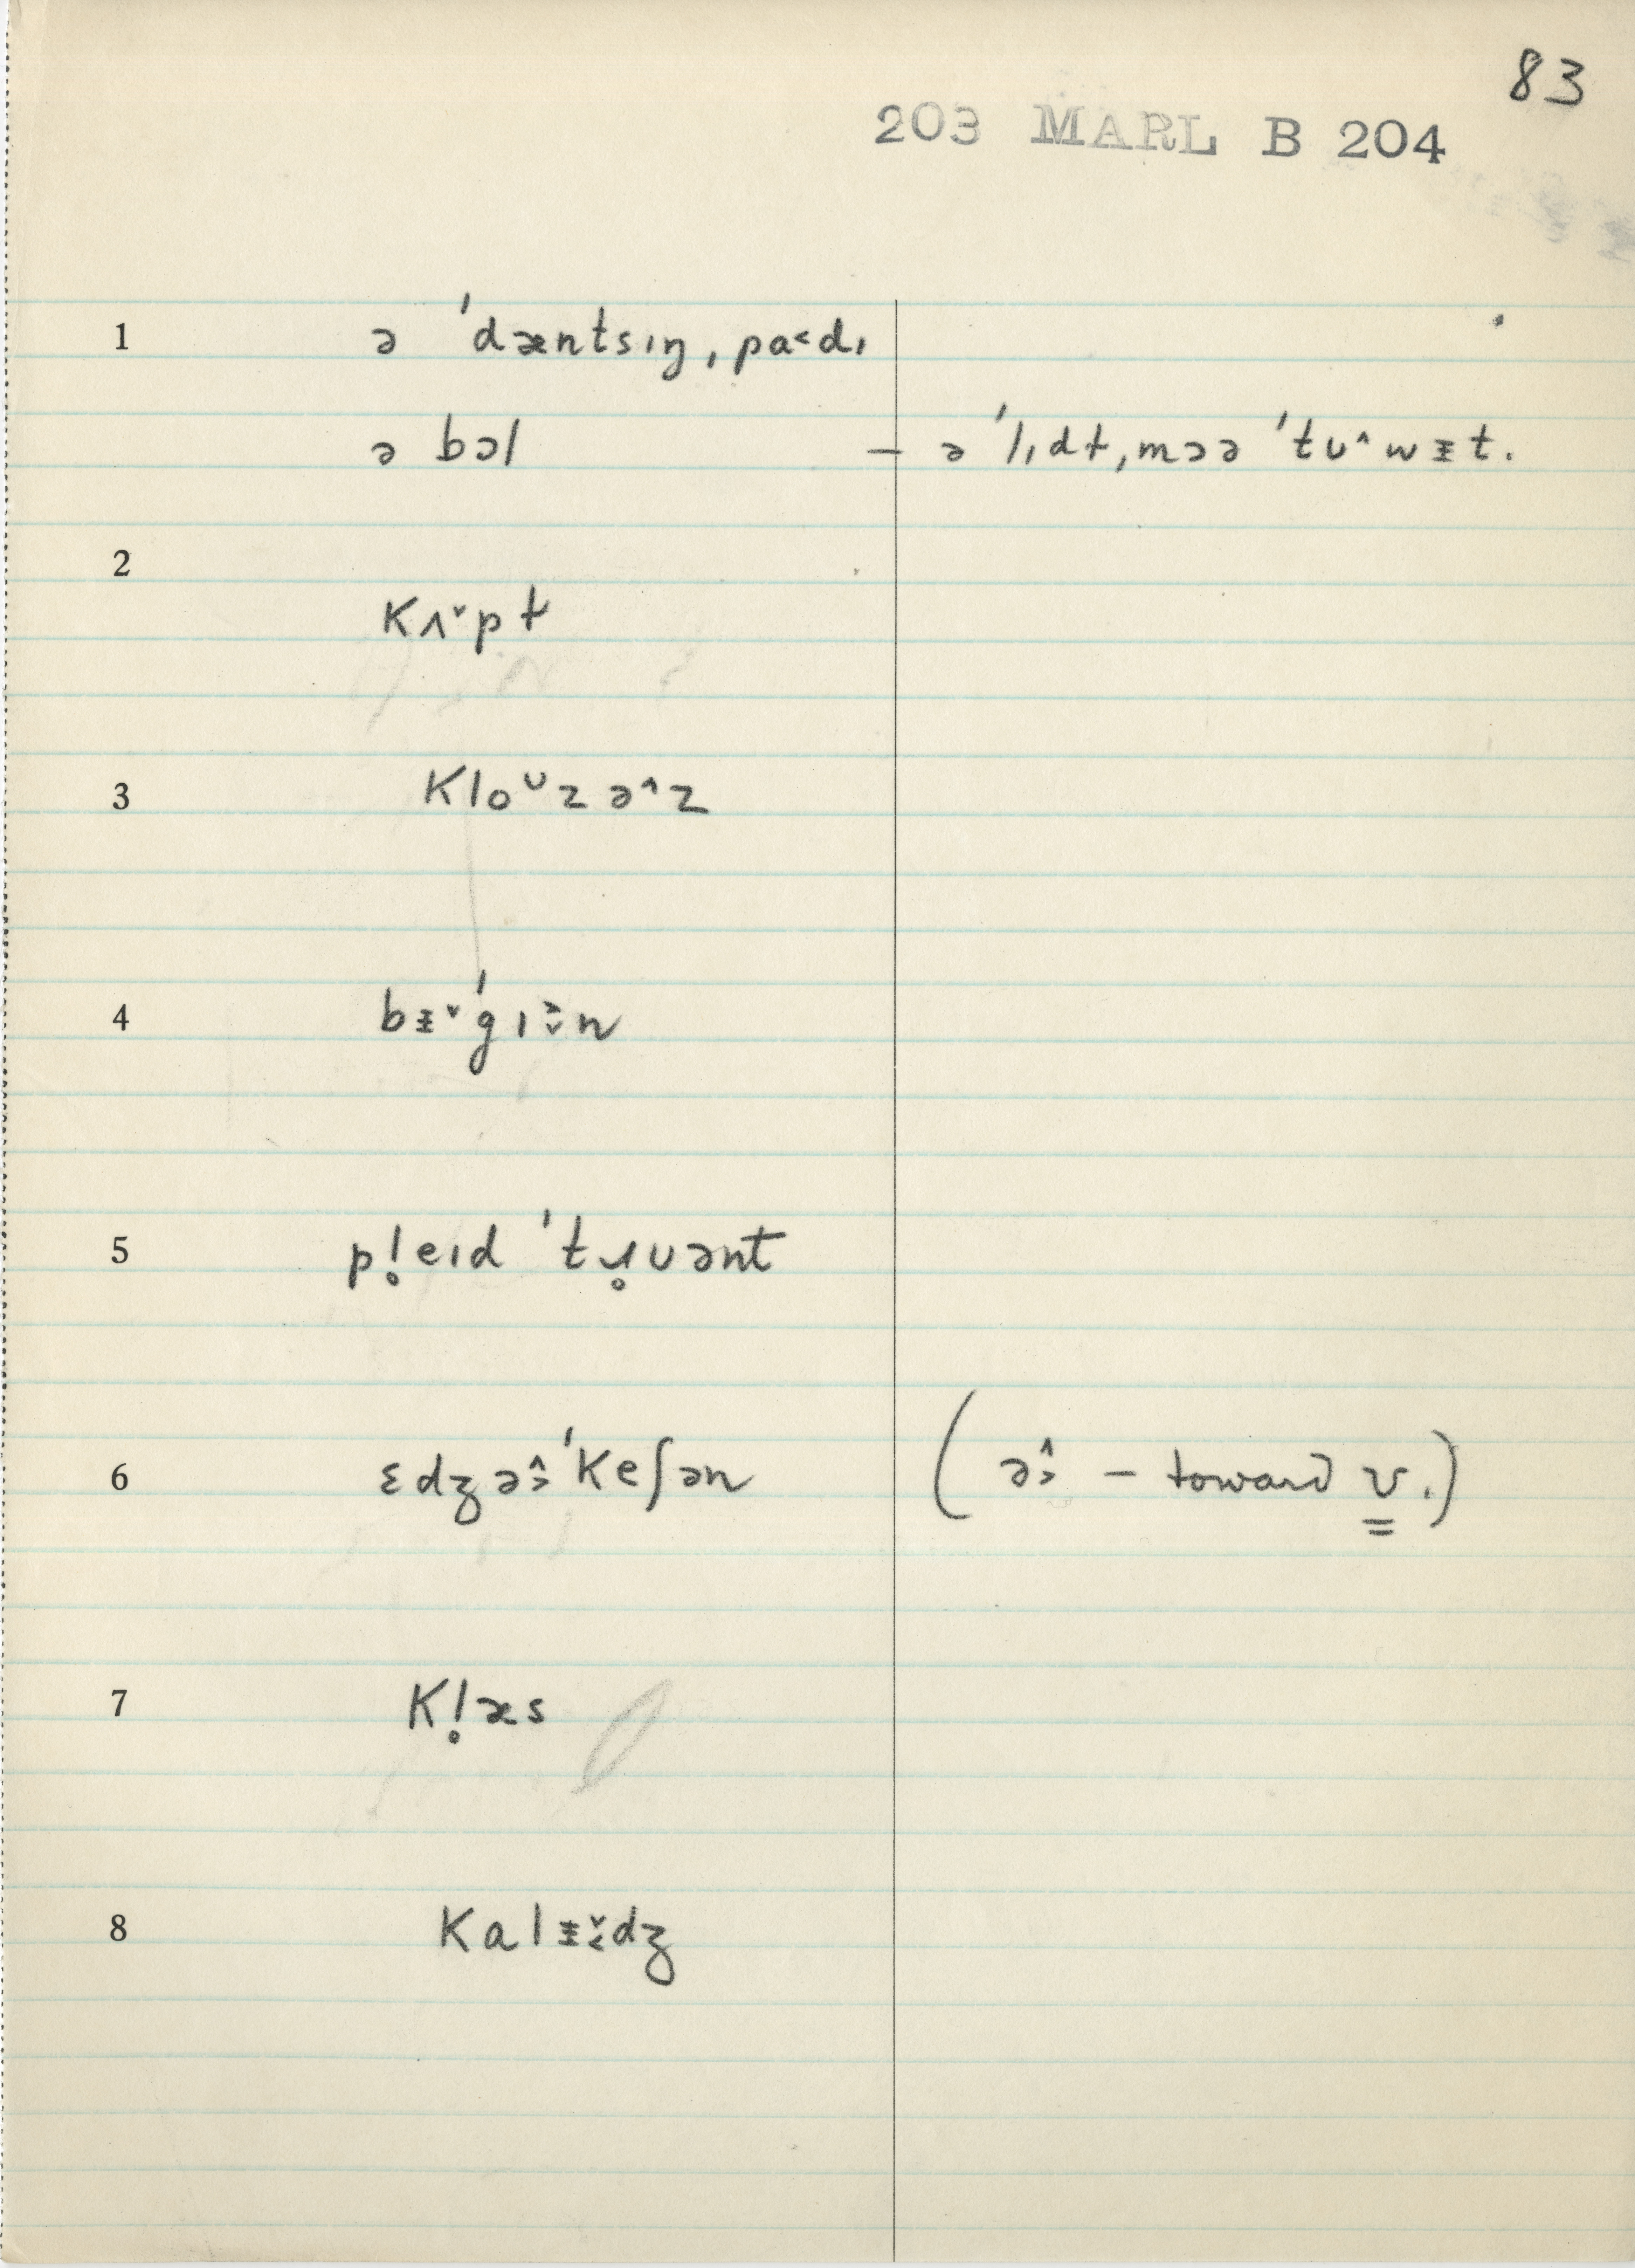 83
203 MARL B 204
1 ə ˈdæntsɪŋ ˌpa˂dɪ
ə bɔl – ə ˈlɪdt ˌmɔə ˈtʊ˄wᵻt.
2
kʌ˅pt
3 kloᴜzə˄z
4 bᵻ˅ˈgɪ˃˅n
5 pl̥eɪd ˈtɹ̥ʊənt
6 ɛdʒə˄˃ˈkeʃən (ə˄˃ – toward ʊ.)
7 kl̥æs
8 kalᵻ˅˂dʒ